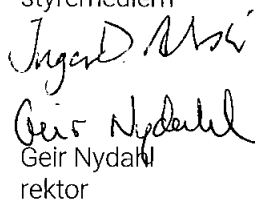 styremedlem
Geir Nydahl
Geir Nydahl
rektor